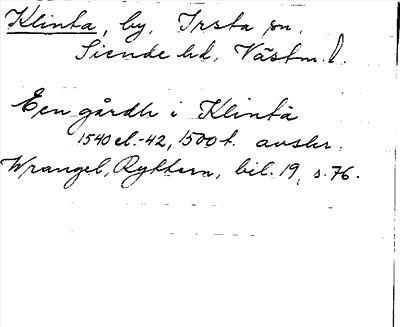 Klinta, by, Irsta sn.
Siende hd, Västm. l.
Een gårdh i Klintä
1540 el.-42, 1500 t. avskr.
Wrangel, Ryttern, bil. 19, s. 76.